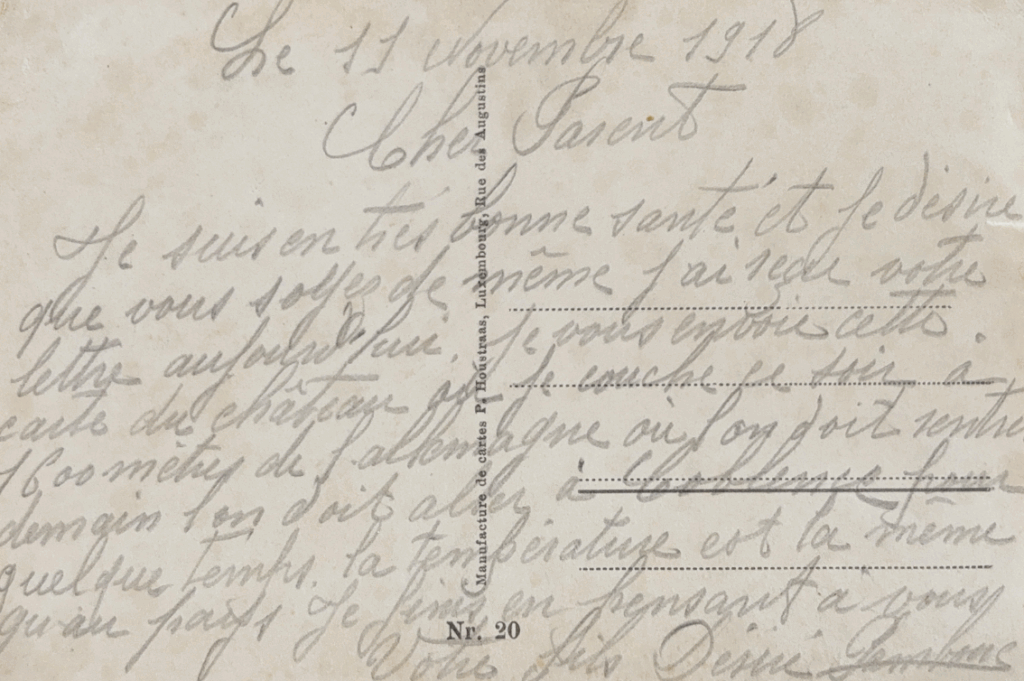 Le 11 Novembre 1918
Cher Parent
Je suis en tres bonne santé et Je désire
que vous soyes de même J'ai recu votre
lettre aujourd'hui. Je vous envoie cette
carte du château où Je couche ce soir à
1600 mètres de l'allemagne où l'on doit rentre
demain l'on doit aller à Coblence pour
quelque temps. la température est la même
qu'au pays Je finis en pensant à vous
Votre fils Désiré
Manufacture de cartes P. Houstraas, Luxembourg, Rue des Augustins
Nr. 20